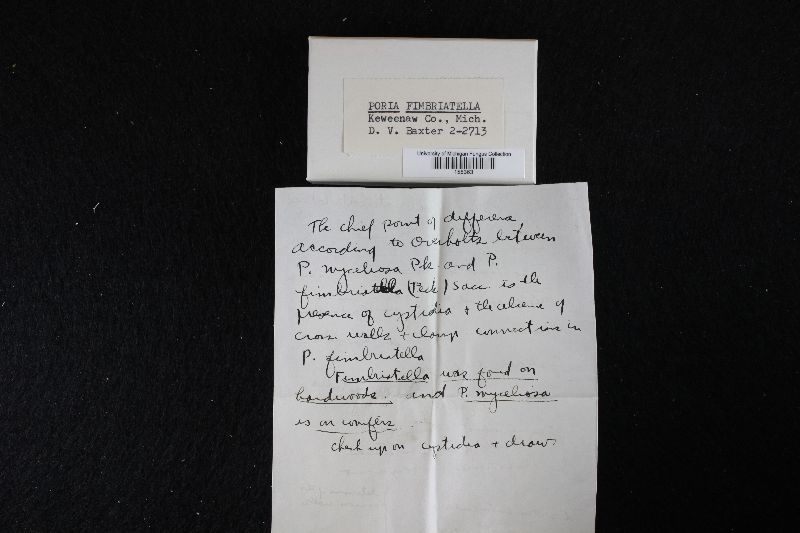 PORIA FIMBRIATELLA
Keweenaw Co., Mich.
D. V. Baxter 2-2713
University of Michigan Fungus Collection
The chief point of difference,
according to Overholts between
P. myceliosa Pk and P.
fimbriatella (Peck) Sacc. is the
presence of cystidia + the absence of
cross walls + clamp connections in
P. fimbriatella
Fimbriatella was found on
hardwoods. and P. myceliosa
is on conifers
Check up on cystidia + draw